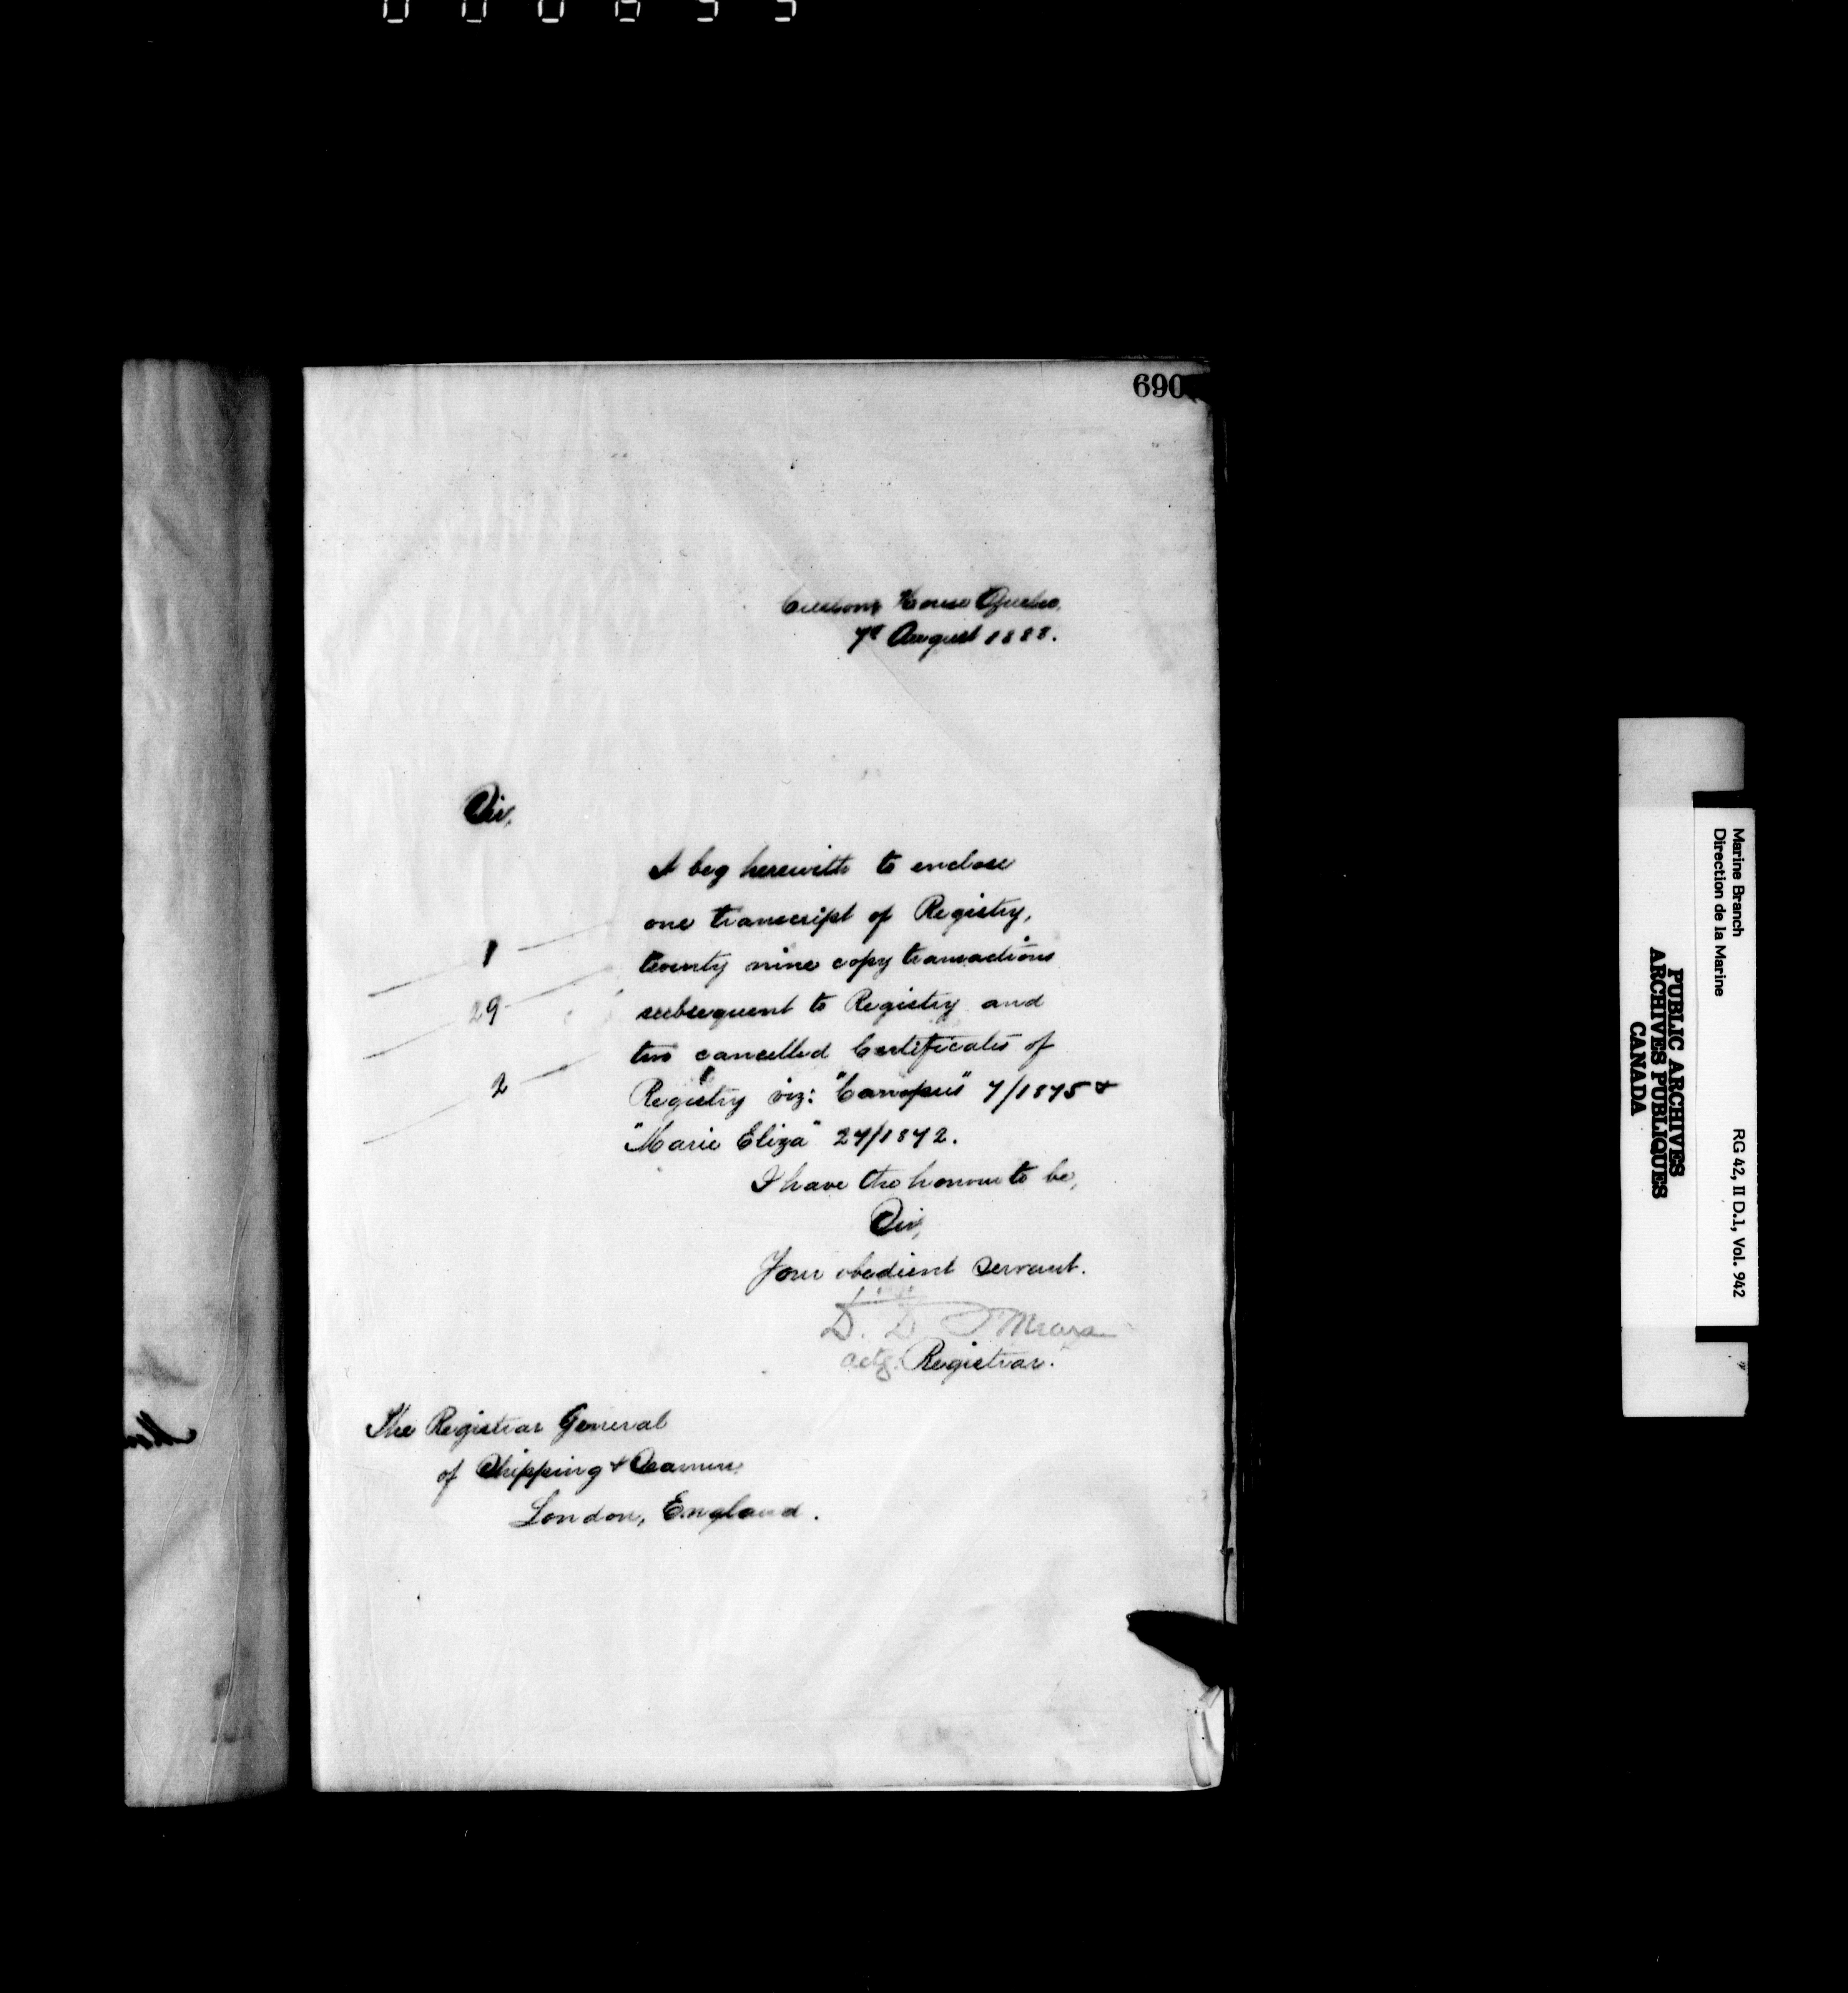 690
Customs House Quebec,
7th August 1888.
Sir,
I beg herewith to enclose
one transcript of Registry,
1
twenty nine copy transactions
29
subsequent to Registry and
two cancelled Certificates of
2
Registry viz: "Canopus" 7/1875 &
"Marie Eliza" 27/1872.
I have the honour to be,
Sir,
Your obedient servant.
D. D.
actg. Registrar.
The Registrar General
of Shipping & Seamen,
London, England.
Marine Branch
Direction de la Marine
RG 42, II D.1, Vol. 942
PUBLIC ARCHIVES
ARCHIVES PUBLIQUES
CANADA